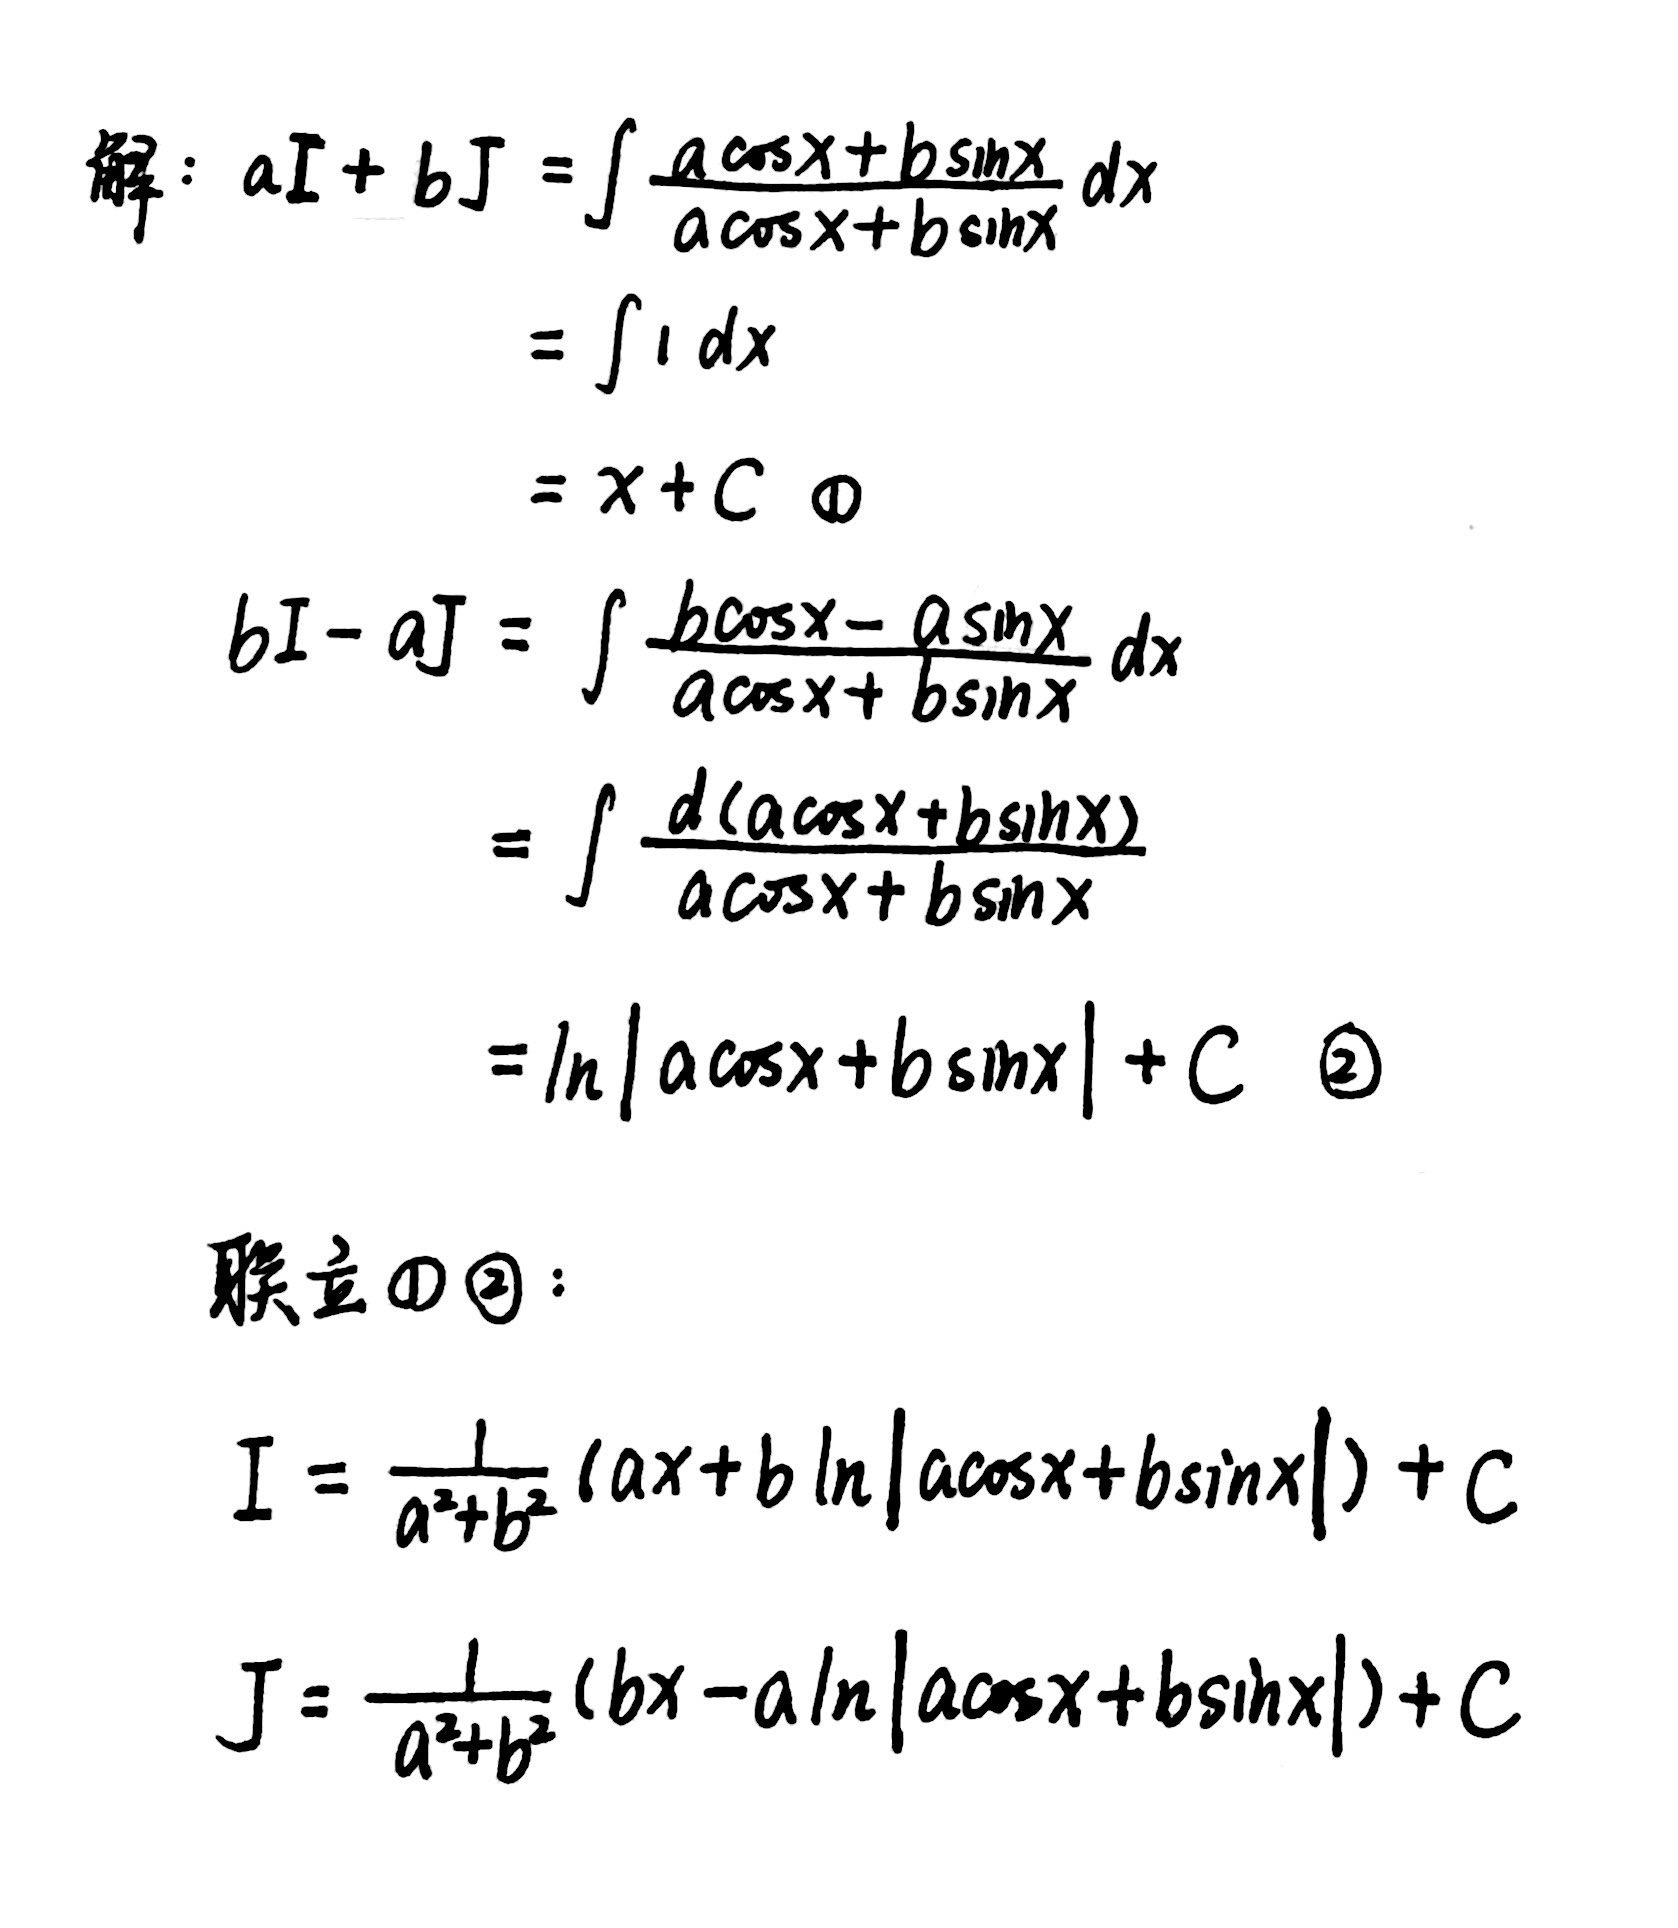 解: aI + bJ = ∫ (acosx+bsinx)/(acosx+bsinx) dx
= ∫ 1 dx
= x + C ①
bI - aJ = ∫ (bcosx - asinx)/(acosx + bsinx) dx
= ∫ d(acosx+bsinx)/(acosx + bsinx)
= ln|acosx+bsinx| + C ②
联立①②:
I = 1/(a²+b²) (ax + b ln|acosx+bsinx|) + C
J = 1/(a²+b²) (bx - a ln|acosx+bsinx|) + C